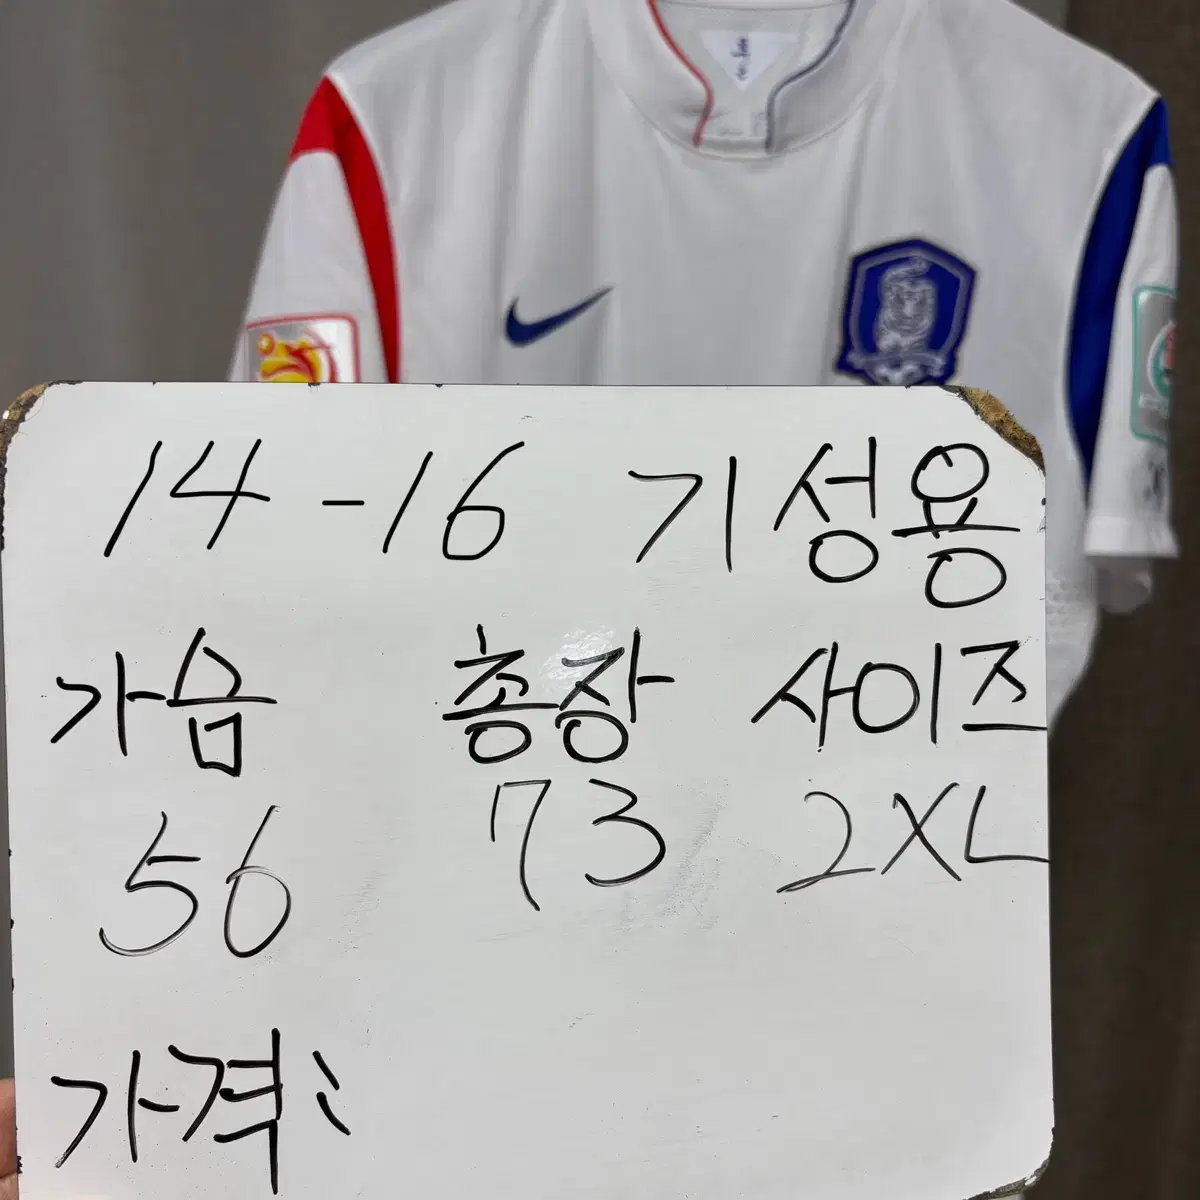 14-16 기성용
가슴 총장 사이즈
56 73 2XL
가격: